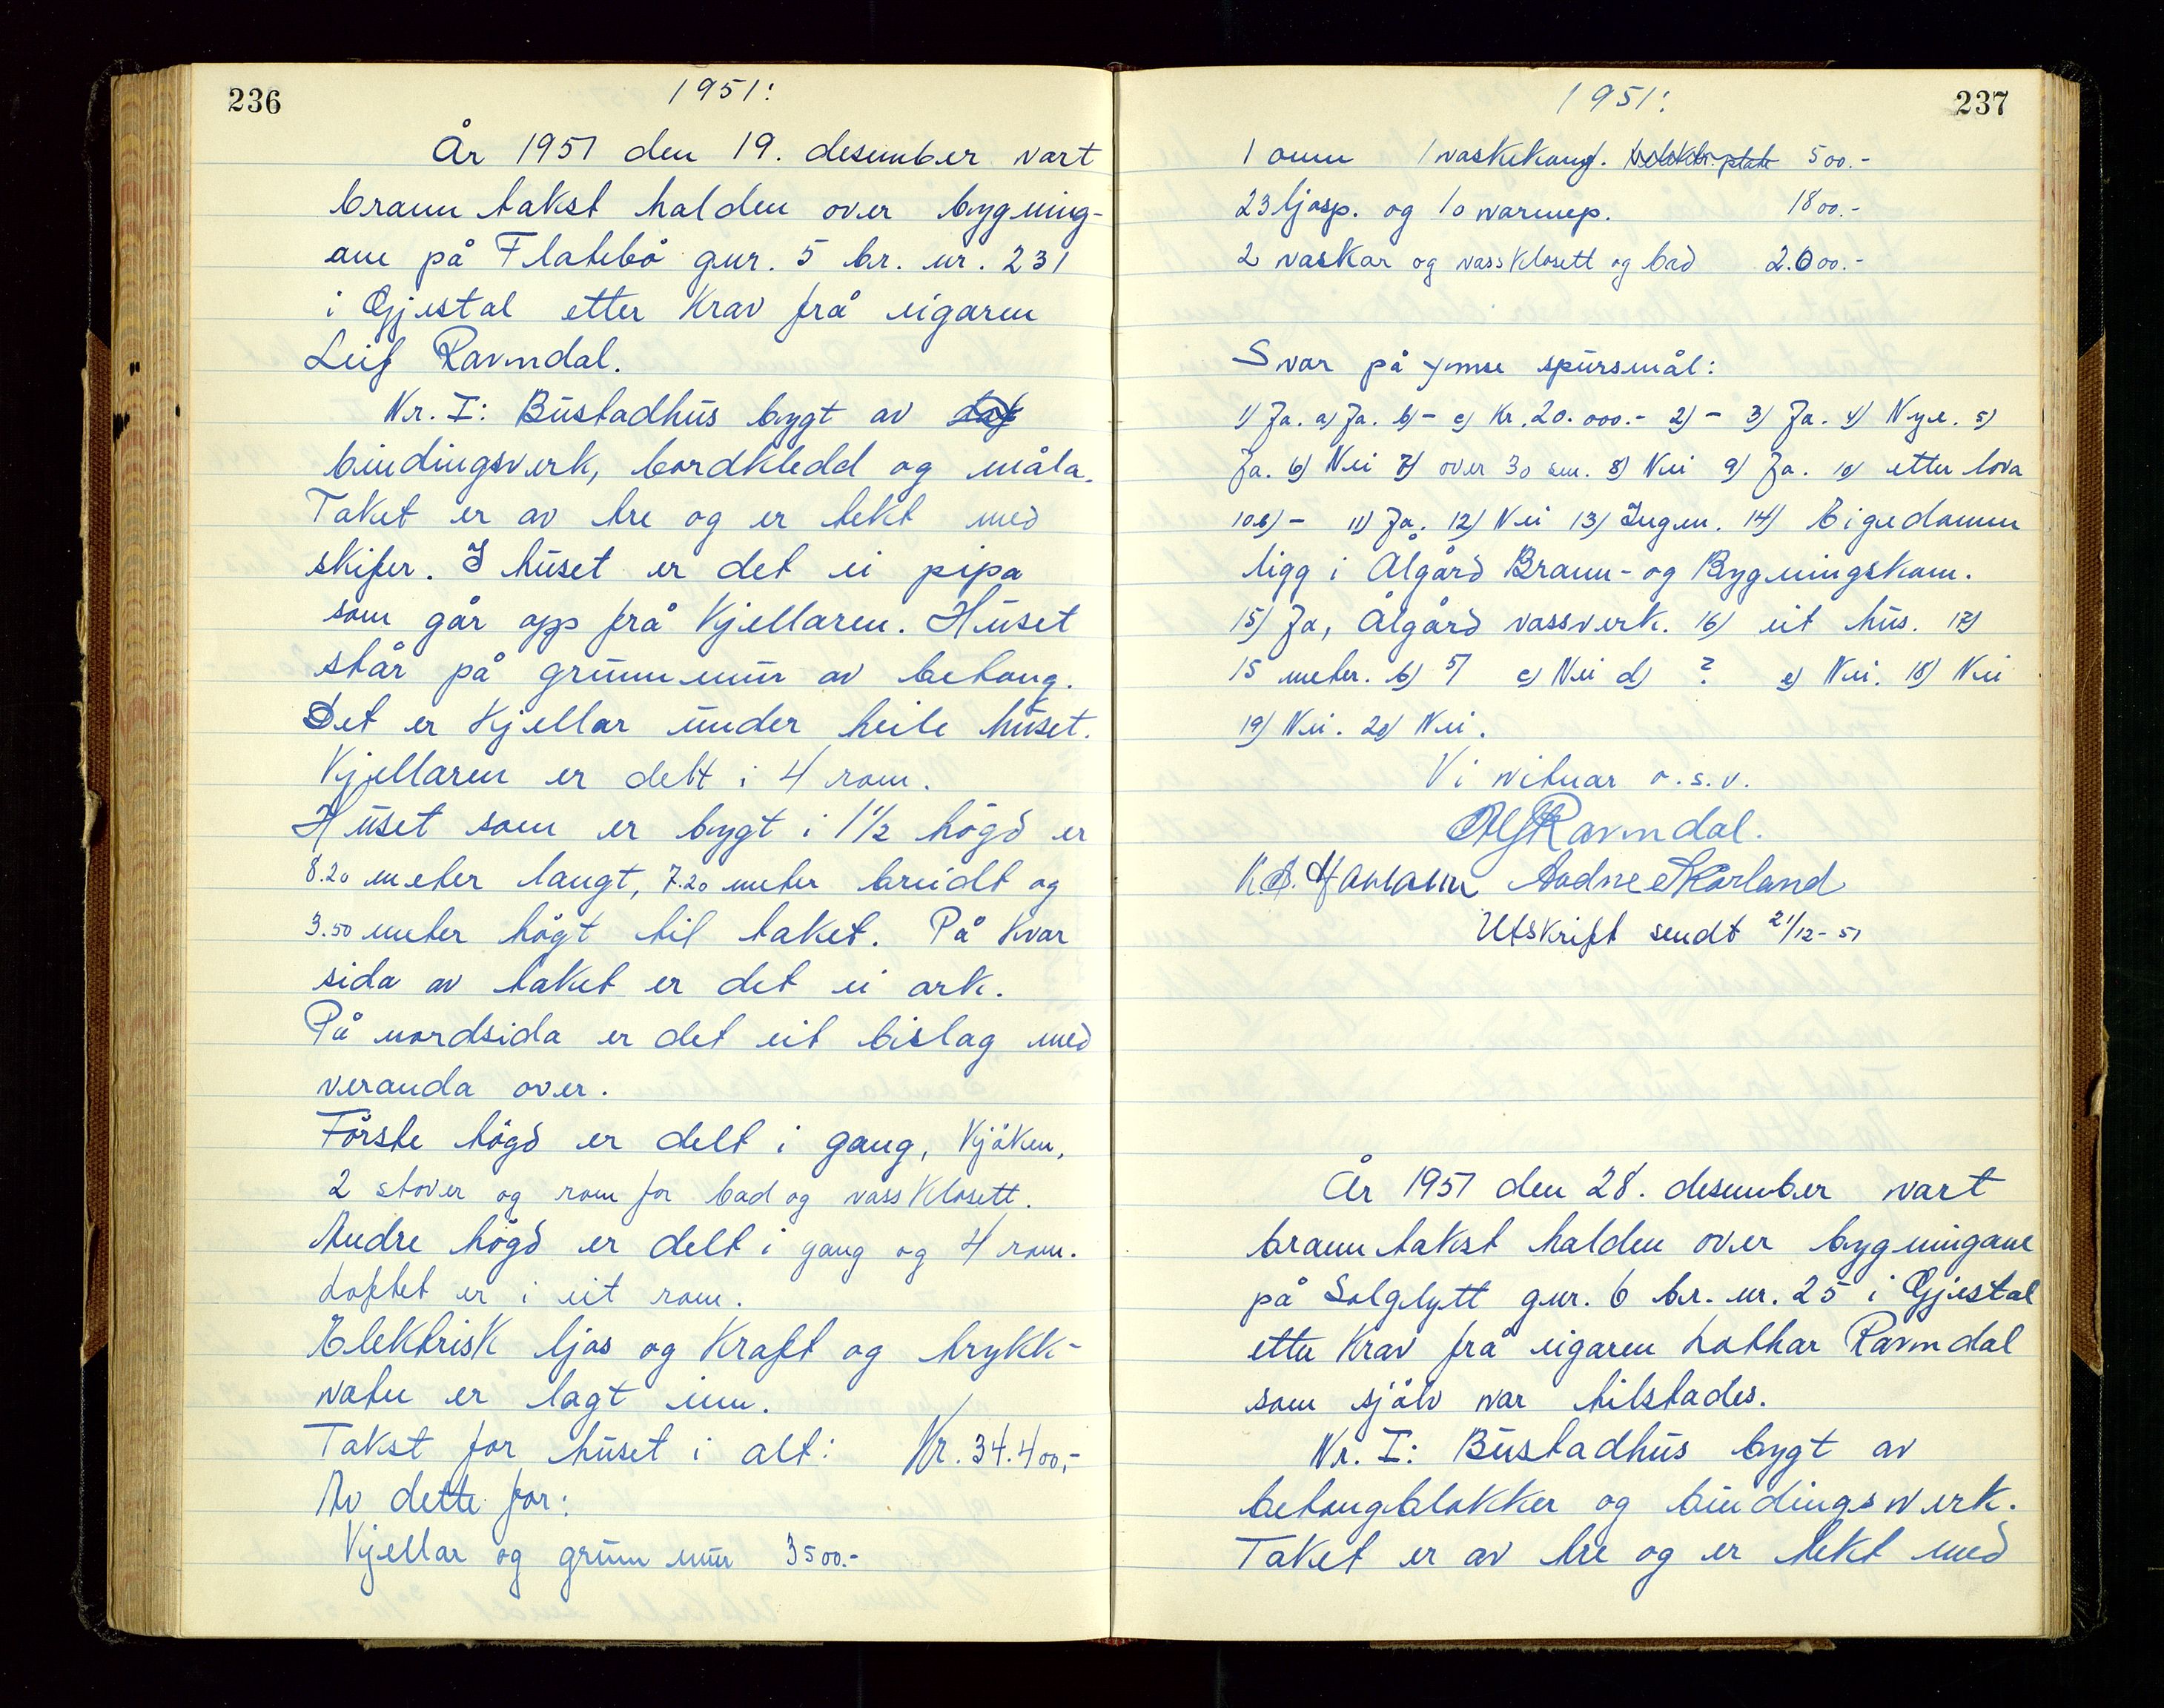 236
1951:
År 1951 den 19. desember vart
branntakst halden over bygning-
ane på Flatebø gnr. 5 br. nr. 231
i Gjestal etter krav frå eigaren
Leif Ravndal.
Nr. I: Bustadhus bygt av
bindingsverk, bordkledd og måla.
Taket er av tre og er tekt med
skifer. I huset er det ei pipa
som går opp frå kjellaren. Huset
står på grunnmur av betong.
Det er kjellar under heile huset.
Kjellaren er delt i 4 rom.
Huset som er bygt i 1 1/2 høgd er
8.20 meter langt, 7.20 meter breidt og
3.50 meter høgt til taket. På kvar
sida av taket er det ei ark.
På nordsida er det eit bislag med
veranda over.
Første høgd er delt i gang, kjøken,
2 stover og rom for bad og vassklosett.
Andre høgd er delt i gang og 4 rom.
Loftet er i eit rom.
Elektrisk ljos og kraft og trykk-
vatn er lagt inn.
Takst for huset i alt: Kr. 34.400,-
Av dette for:
Kjellar og grunnmur 3500.-
1951:
237
1 omn 1 vaskekomf. 500.-
23 ljosp. og 10 varmep. 1800.-
2 vaskar og vassklosett og bad 2.000.-
Svar på ymse spursmål:
1) Ja. a) Ja. b) - c) Kr. 20.000.- 2) - 3) Ja. 4) Nye. 5)
Ja. 6) Nei 7) over 30 sm. 8) Nei 9) Ja. 10) etter lova
10b) - 11) Ja. 12) Nei 13) Ingen. 14) Eigedomen
ligg i Ålgård Brann- og Bygningskom.
15) Ja, Ålgård vassverk. 16) eit hus. 17)
15 meter. b) 51 c) Nei d) ? e) Nei. 18) Nei
19) Nei. 20) Nei.
Vi vitnar o.s.v.
Ravndal.
K. Hamann Aadne Skorland
Utskrift sendt 21/12-51
År 1951 den 28. desember vart
branntakst halden over bygningane
på Solglytt gnr. 6 br. nr. 25 i Gjestal
etter krav frå eigaren Lothar Ravndal
som sjølv var tilstades.
Nr. I: Bustadhus bygt av
betongblokker og bindingsverk.
Taket er av tre og er tekt med